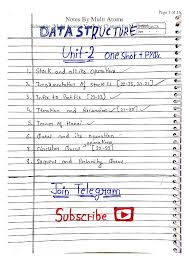 Page 1 of 15
Notes By Multi Atoms
DATA STRUCTURE
Unit-2 one shot + PYQs
1. Stack and all its operations
2. Implementation of Stack LL [22-23, 20-21]
3. Infix to Postfix [22-23]
4. Iteration and Recursion [20-21]
5. Tower of Hanoi
6. Queue and its operation
7. Circular Queue operations [20-22]
8. Dequeue and Priority Queue
Join Telegram
Subscribe